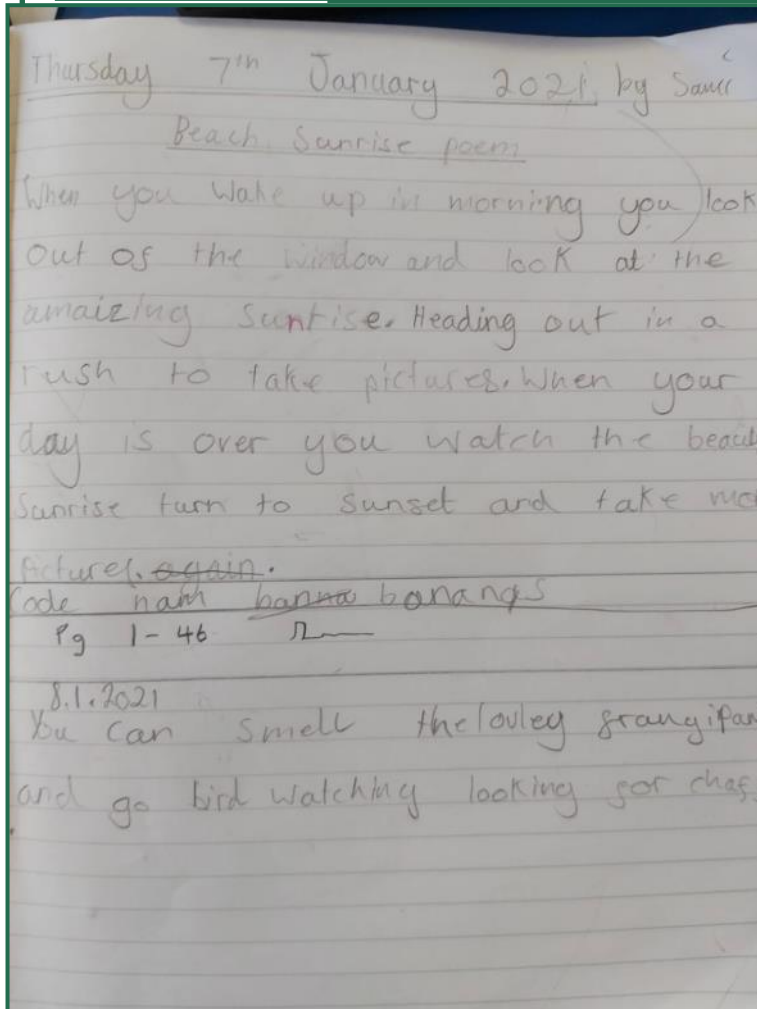 Thursday 7th January 2021 by
Beach Sunrise poem
When you wake up in morning you look
out of the window and look at the
amaizing sunrise. Heading out in a
rush to take pictures. When your
day is over you watch the
Sunrise turn to sunset and take
Pictures. again.
Code nam banna bananas
Pg 1-46
8.1.2021
You can smell the louley
and go bird watching looking for